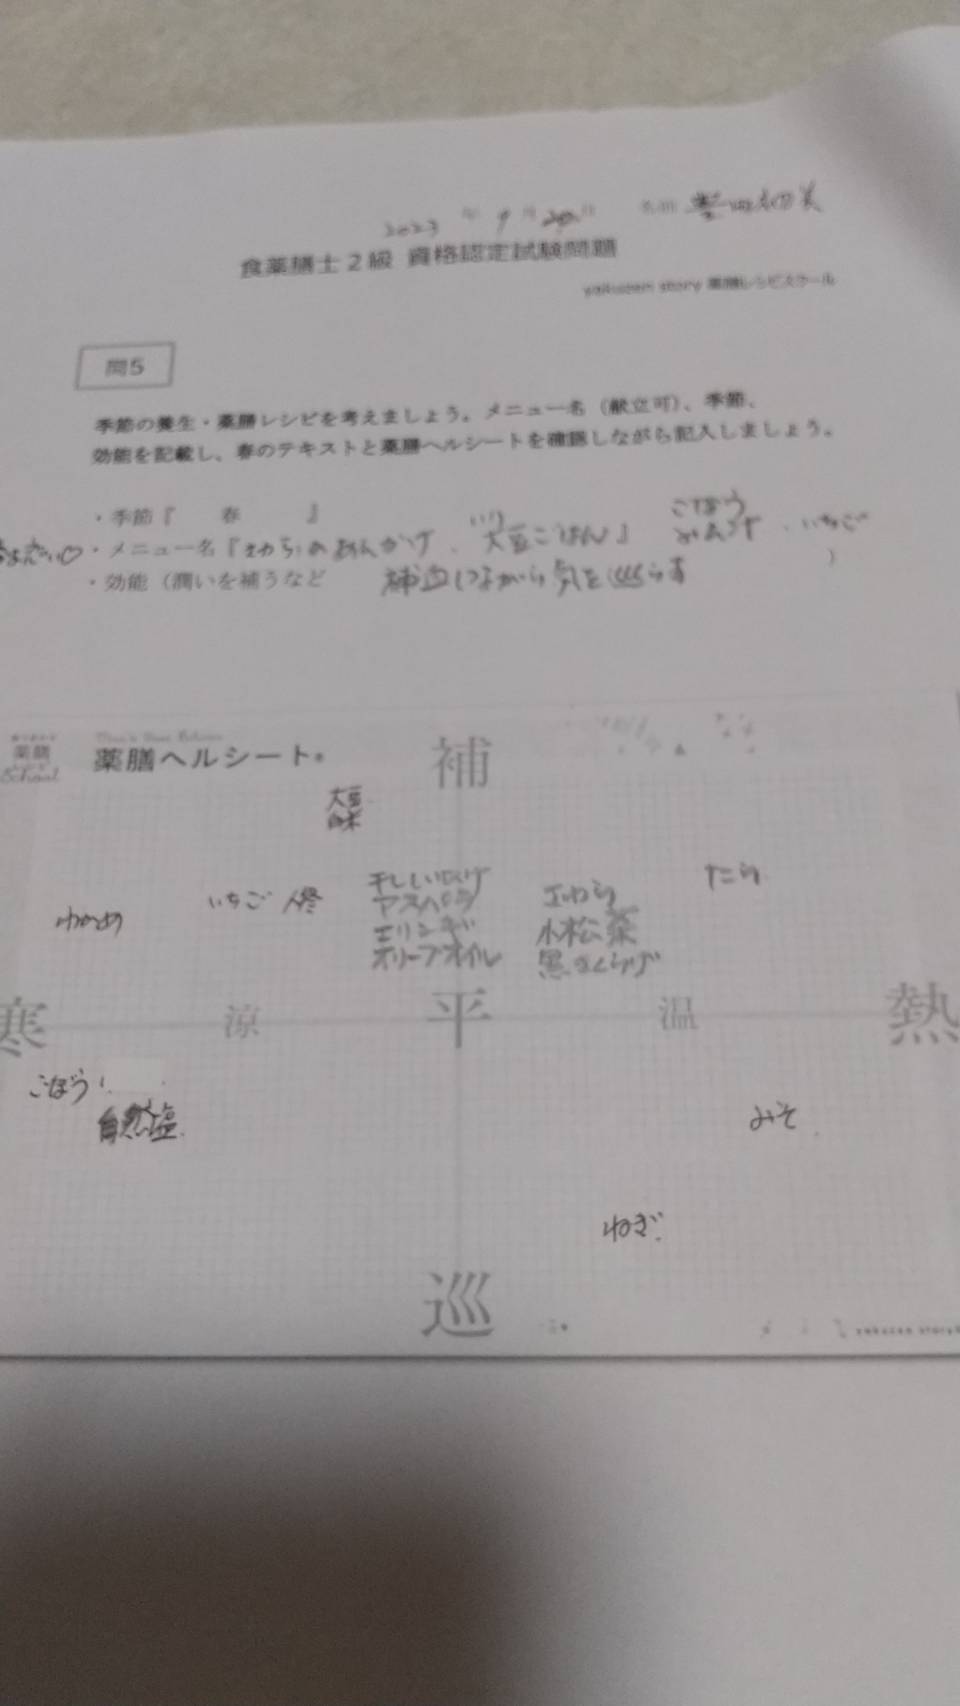 2023 年 9 月 20日 名前
食薬膳士2級 資格認定試験問題
yakuzen story 薬膳レシピスクール
問5
季節の養生・薬膳レシピを考えましょう。メニュー名（献立可）、季節、
効能を記載し、春のテキストと薬膳ヘルシートを確認しながら記入しましょう。
・季節『 春 』
・メニュー名『 のあんかけ、いり大豆ごはん』 ごぼうみそ汁 、いちご
・効能（潤いを補うなど 補血しながら気を巡らす ）
薬膳
School
薬膳ヘルシート®
補
大豆
白米
干ししいたけ
たら
わかめ
いちご 人参
アスパラ
エリンギ
小松菜
オリーブオイル
黒きくらげ
寒 涼 平 温 熱
ごぼう
自然塩
みそ
ねぎ
巡
yakuzen story